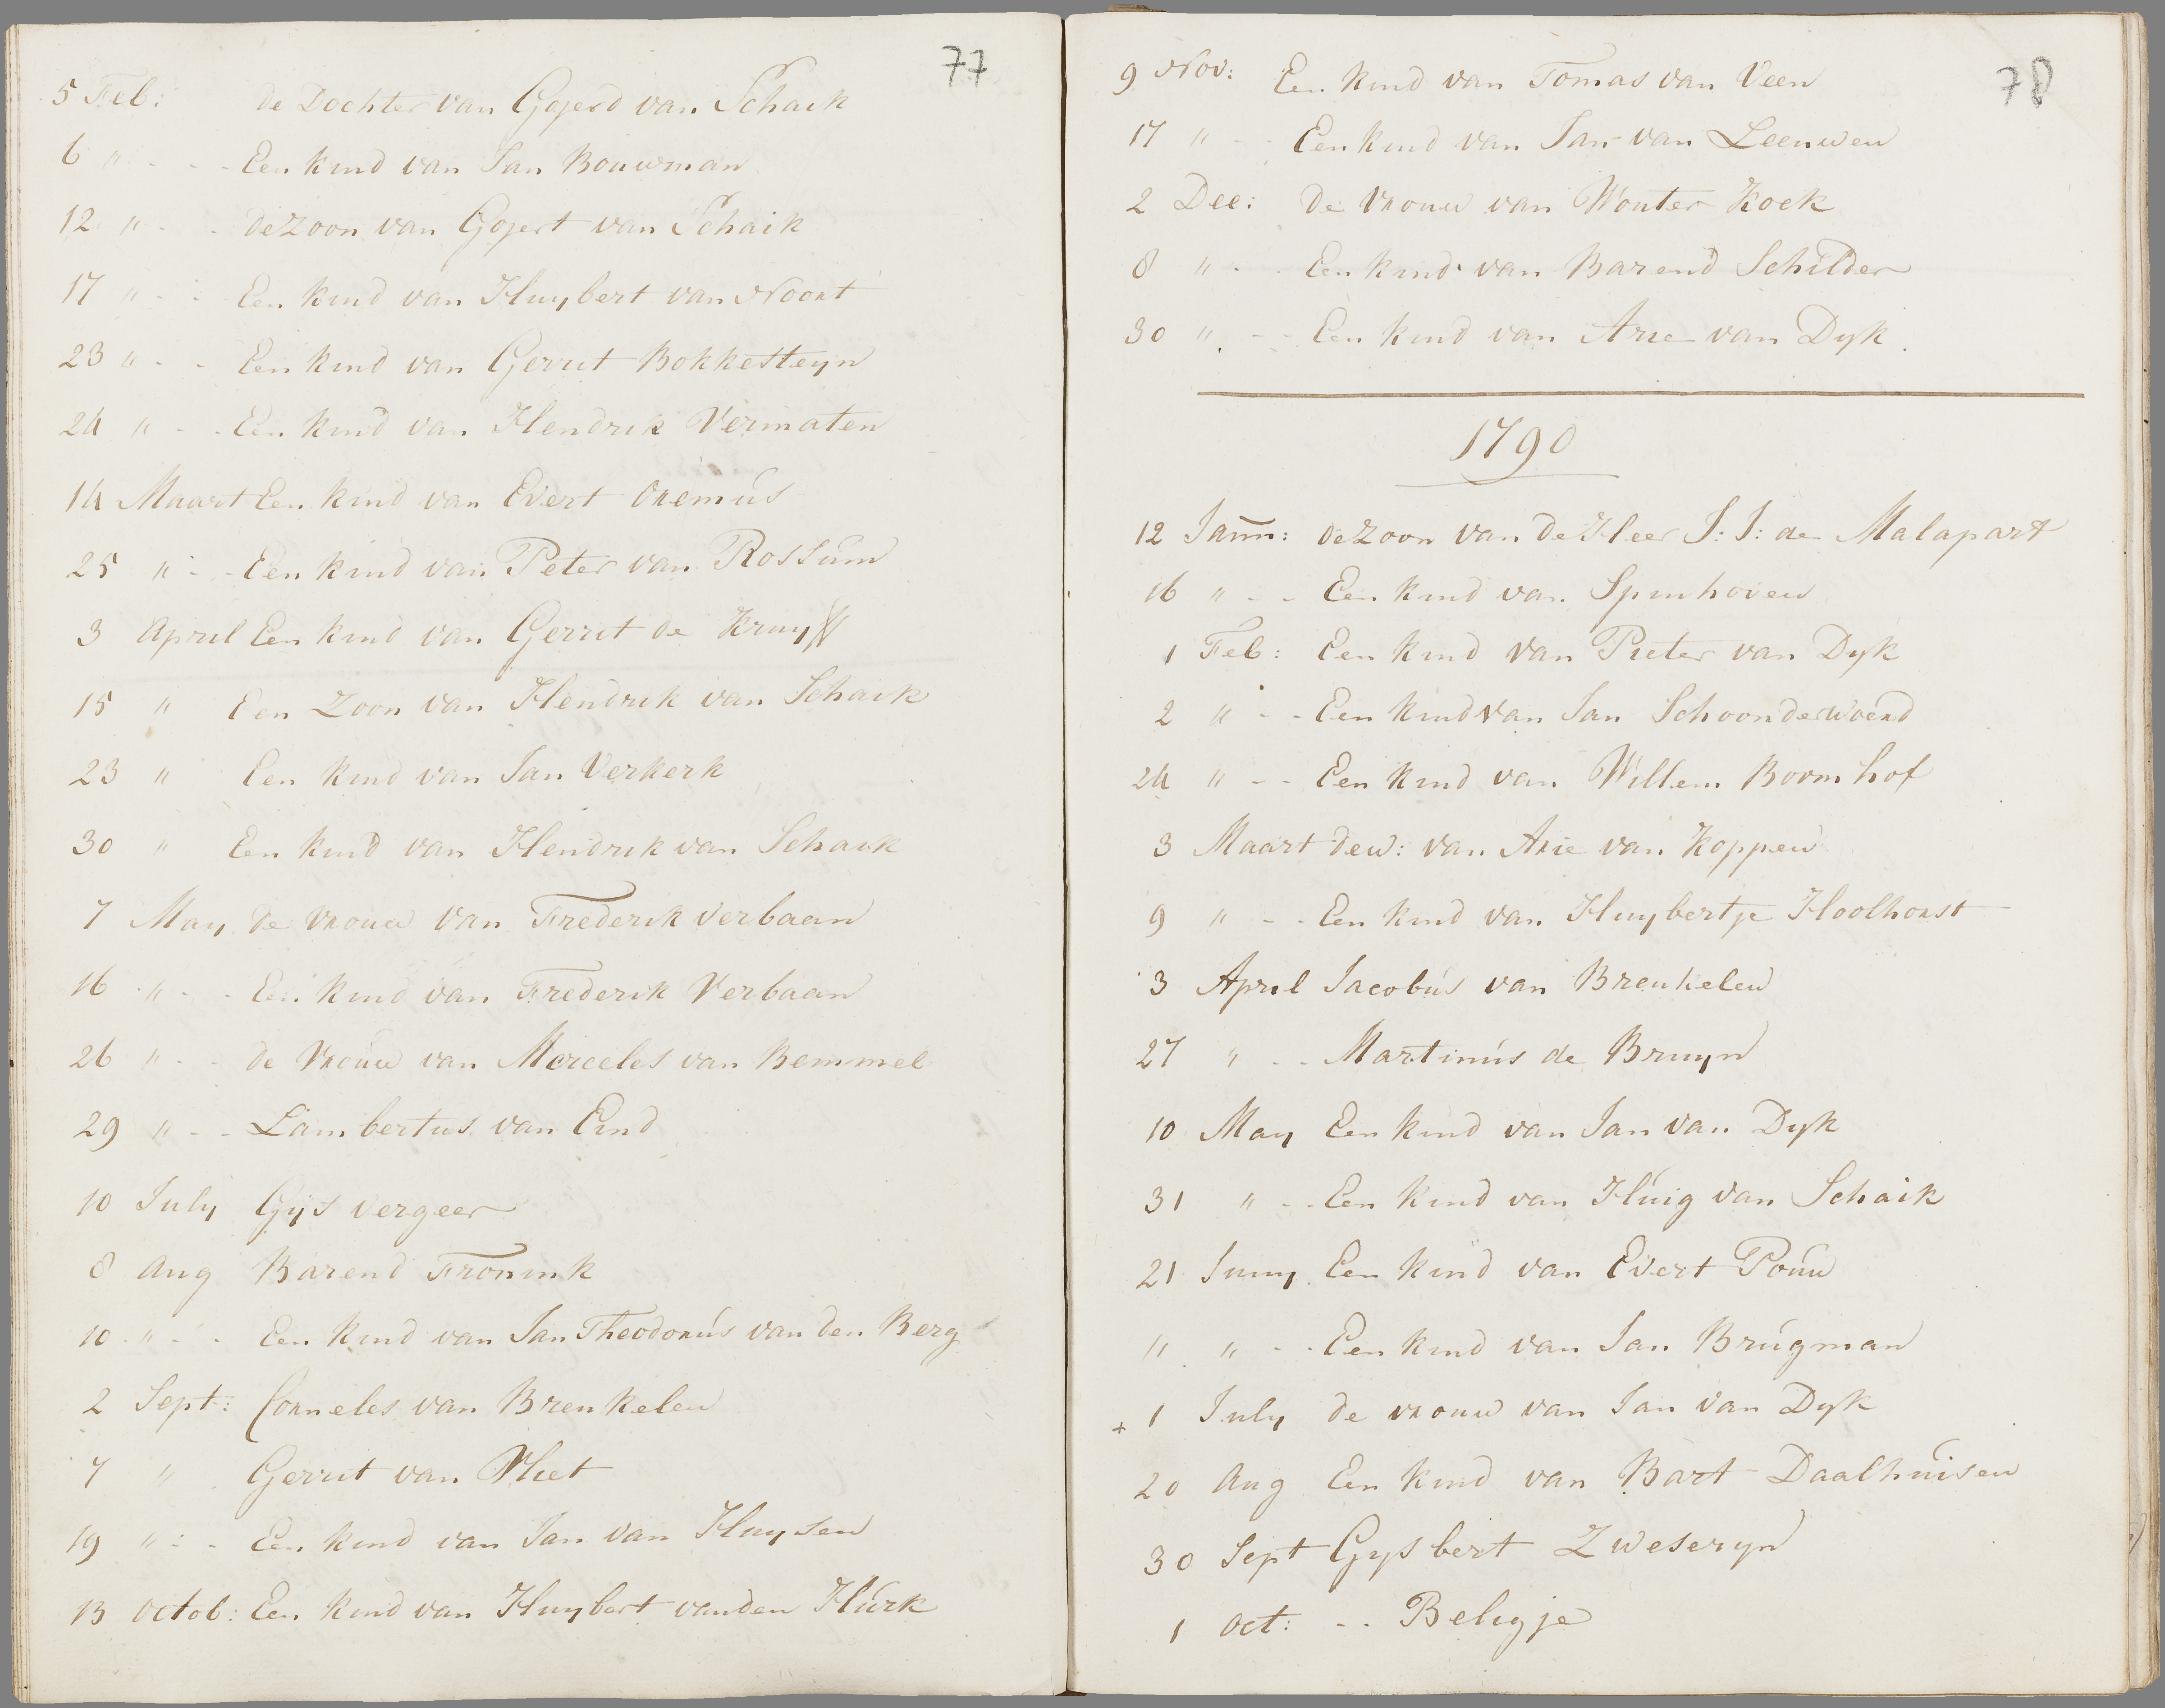 77
5 Feb: de Dochter van Gojerd van Schaik
6 " - - - Een kind van Jan Bouwman
12 " - - de Zoon van Gojert van Schaik
17 " - - Een kind van Huybert van Noort
23 " - - Een kind van Gerrit Bokkesteyn
24 " - - Een kind van Hendrik Vermaten
14 Maart Een kind van Evert Oremus
25 " - - Een kind van Peter van Rossum
3 April Een kind van Gerrit de Kruyff
15 " Een Zoon van Hendrik van Schaik
23 " Een kind van Jan Verkerk
30 " Een kind van Hendrik van Schaik
7 May de vrouw van Frederik verbaan
16 " - - Een kind van Frederik Verbaan
26 " - - de Vrouw van Merceles van Bemmel
29 " - - Lambertus van Eind
10 July Gijs vergeer
8 Aug Barend Fronink
10 " - - Een kind van Jan Theodorus van den Berg
2 Sept: Corneles van Breukelen
7 " Gerrit van Vliet
19 " - - Een kind van Jan van Huysen
13 Octob: Een kind van Huybert vanden Hurk
78
9 Nov: Een kind van Tomas van Veen
17 " - - Een kind van Jan van Leeuwen
2 Dec: de vrouw van Wouter Kock
8 " - - Een kind van Barend Schilder
30 " - - Een kind van Arie van Dyk
1790
12 Jann: de Zoon van de Heer J: J: de Malapart
16 " - - Een kind van Spinhoven
1 Feb: Een kind van Pieter van Dyk
2 " - - Een kind van Jan Schoonderwoerd
24 " - - Een kind van Willem Boomhof
3 Maart dew: van Arie van Koppen
9 " - - Een kind van Huybertje Hoolhorst
3 April Jacobus van Breukelen
27 " - - Martinus de Bruyn
10 May Een kind van Jan van Dyk
31 " - - Een kind van Huig van Schaik
21 Juny Een kind van Evert Pouw
" " - - Een kind van Jan Brugman
+ 1 July de vrouw van Jan van Dyk
20 Aug Een kind van Bart Daalhuisen
30 Sept Gysbert Zweseryn
1 Oct: - - Beligje